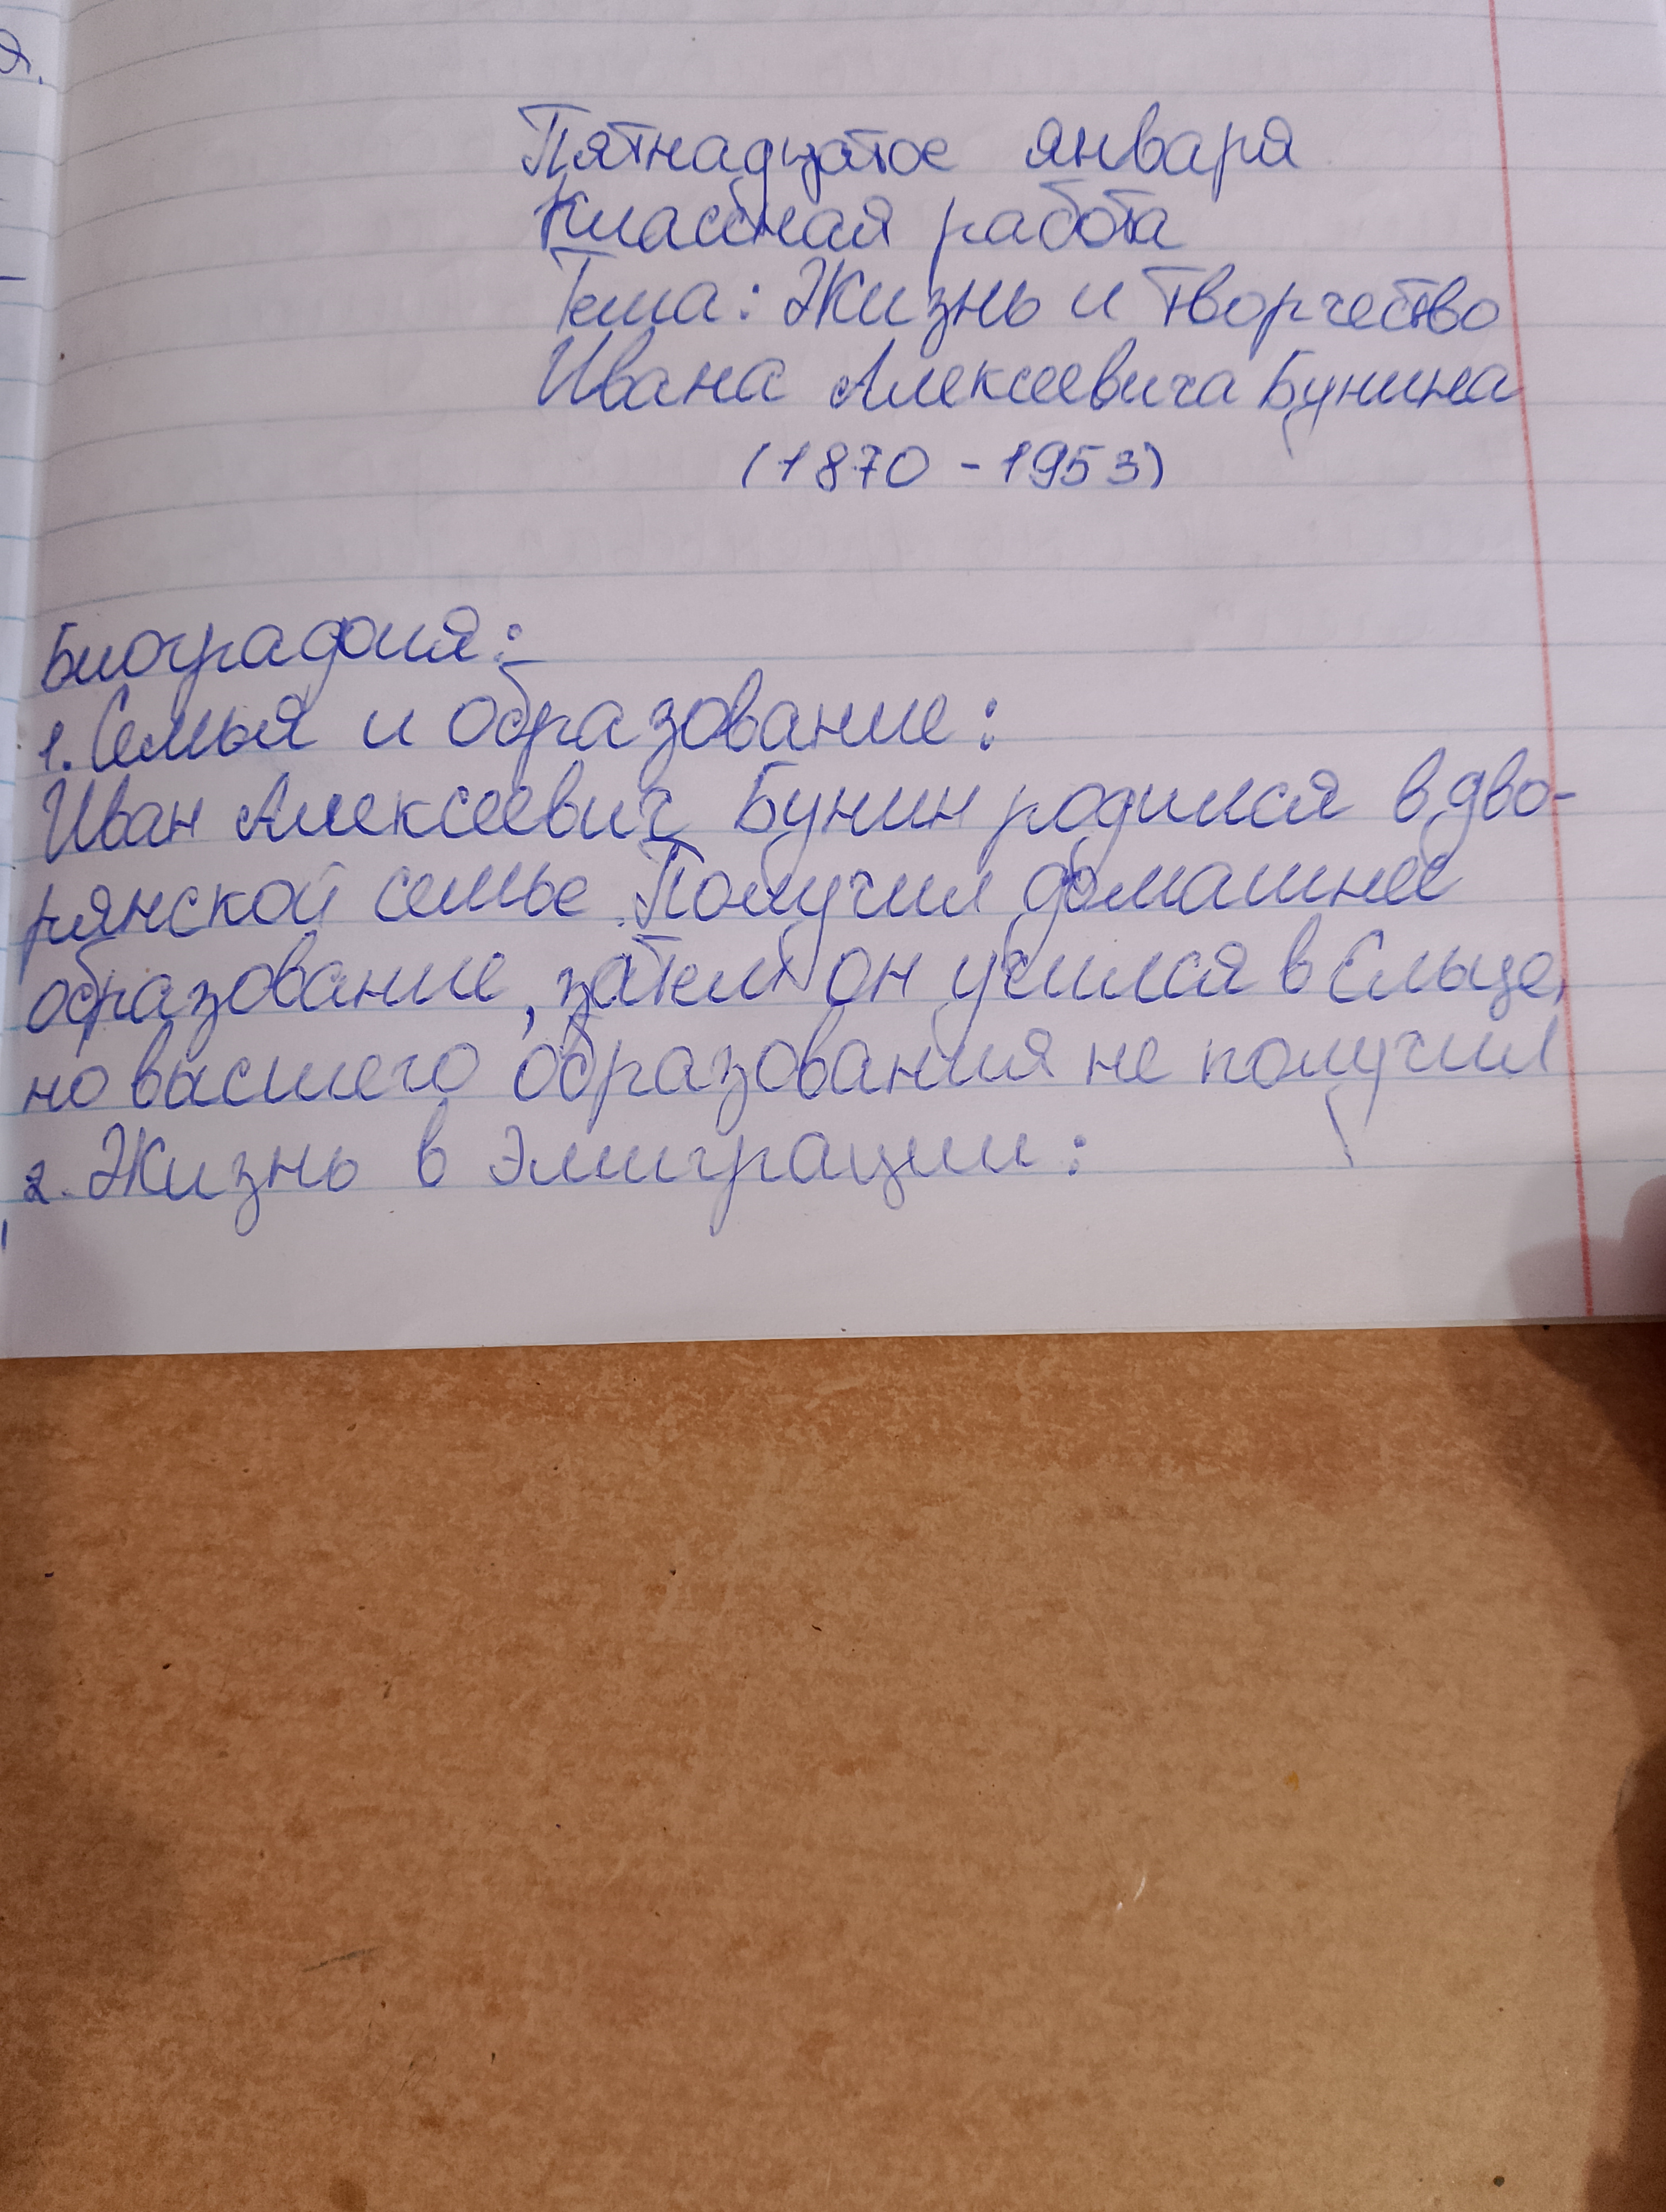 я.
Пятнадцатое января
Классная работа
Тема: Жизнь и творчество
Ивана Алексеевича Бунина
(1870 - 1953)
Биография:
1. Семья и образование:
Иван Алексеевич Бунин родился в дво-
рянской семье. Получил домашнее
образование, затем он учился в Ельце,
но высшего образования не получил
2. Жизнь в эмиграции: